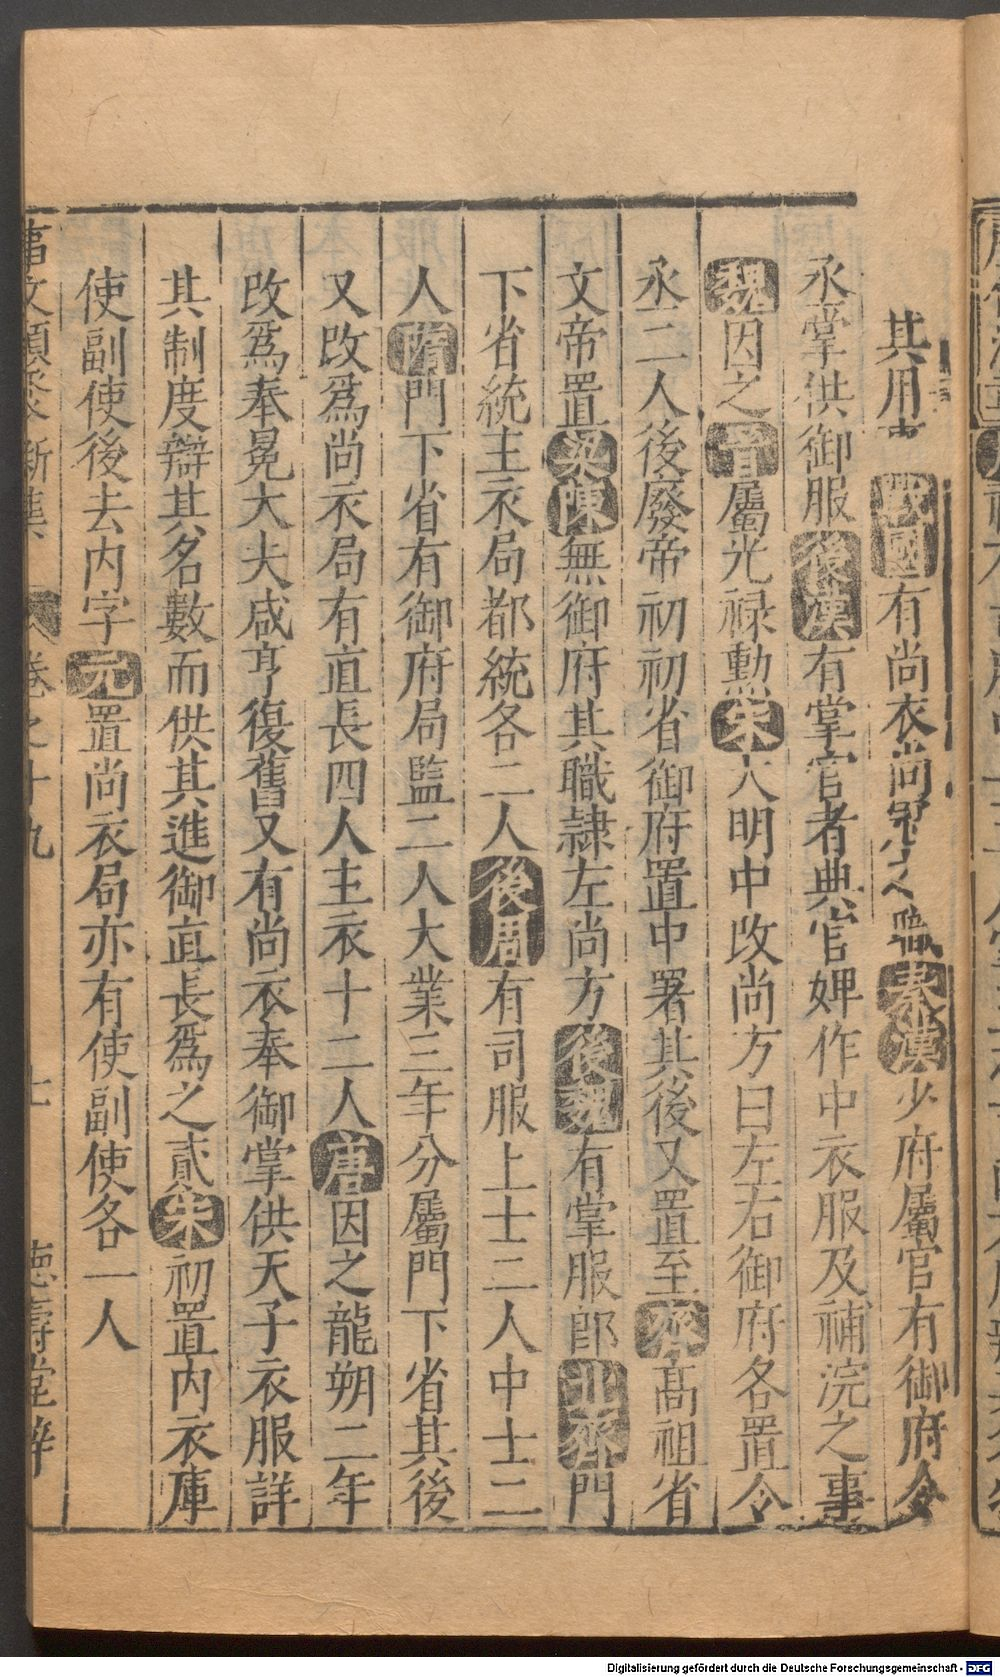 其用 戰國有尚衣尚冠之職秦漢少府屬官有御府令
丞掌供御服後漢有掌宦者典官婢作中衣服及補浣之事
魏因之晉屬光祿勳宋大明中改尚方曰左右御府各置令
丞二人後廢帝初初省御府置中署其後又置至齊高祖省
文帝置梁陳無御府其職隷左尚方後魏有掌服郎北齊門
下省統主衣局都統各二人後周有司服上士二人中士二
人隋門下省有御府局監二人大業三年分屬門下省其後
又改爲尚衣局有直長四人主衣十二人唐因之龍朔二年
改爲奉冕大夫咸亨復舊又有尚衣奉御掌供天子衣服詳
其制度辯其名數而供其進御直長爲之貳宋初置内衣庫
使副使後去内字元置尚衣局亦有使副使各一人
事文類聚新集 卷之十九 七 德壽堂梓
Digitalisierung gefördert durch die Deutsche Forschungsgemeinschaft - DFG